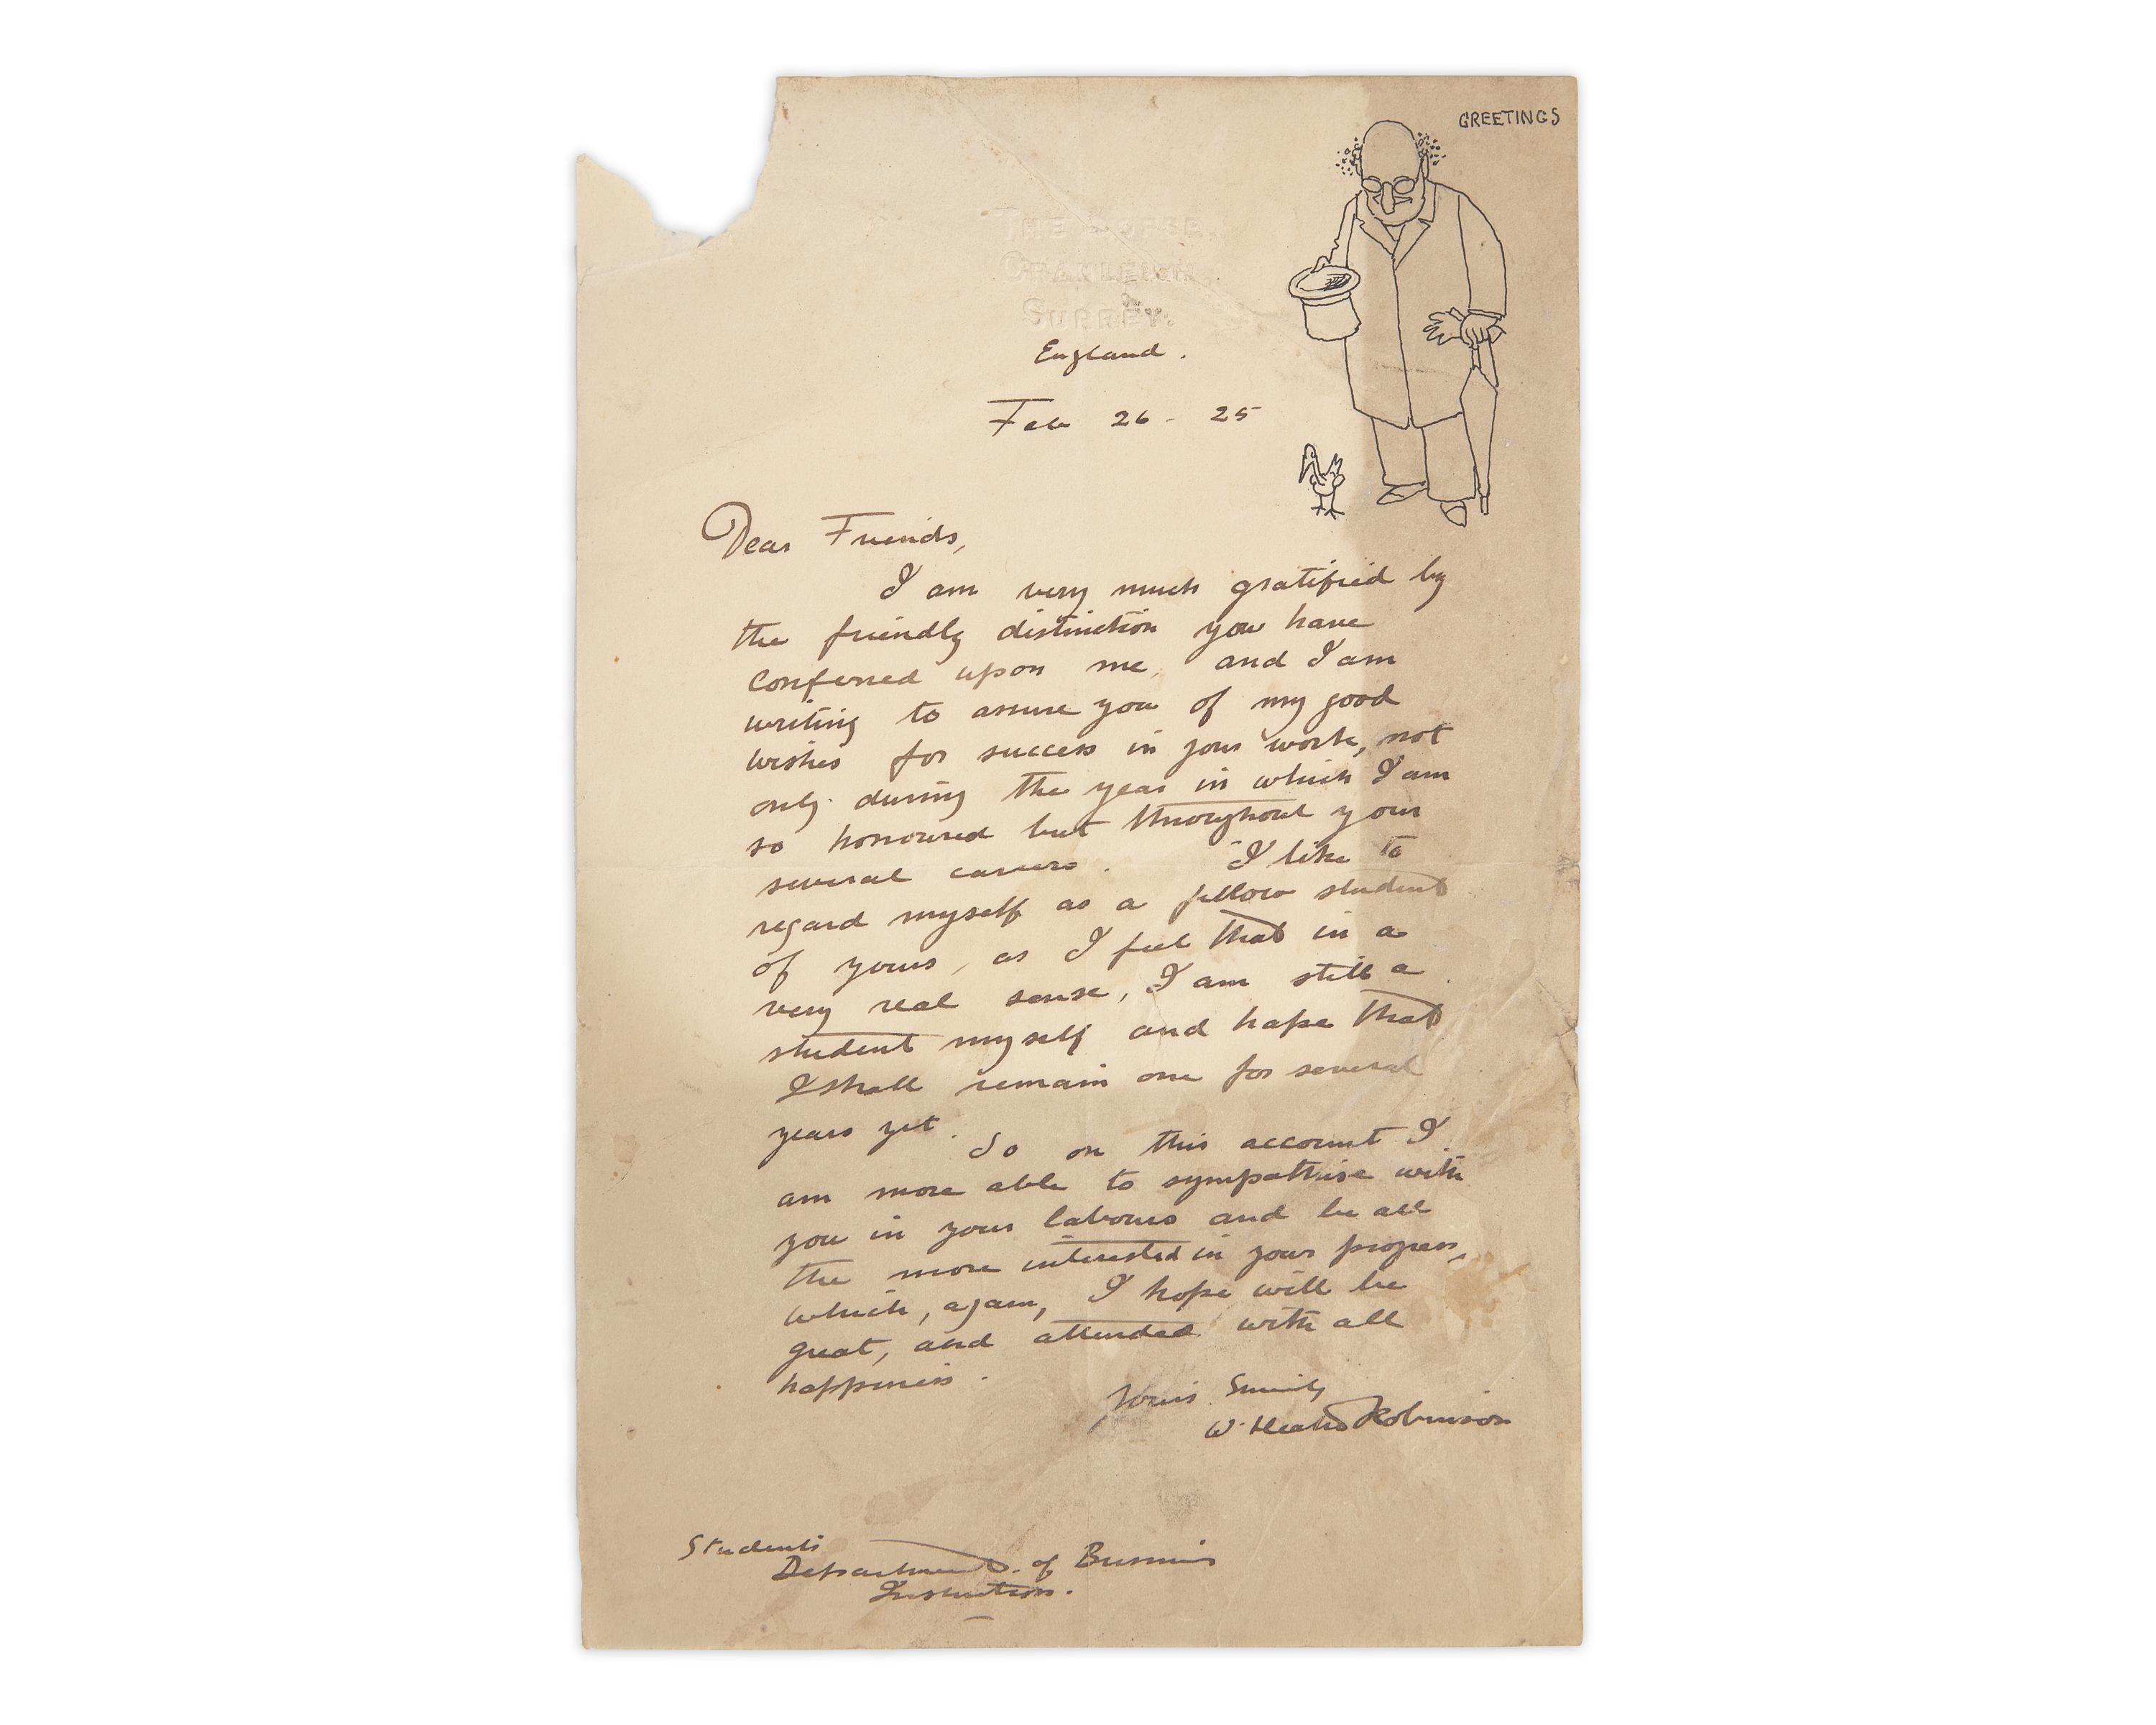 GREETINGS
THE COPSE,
CRANLEIGH,
SURREY.
England.
Feb 26 - 25
Dear Friends,
I am very much gratified by
the friendly distinction you have
conferred upon me, and I am
writing to assure you of my good
wishes for success in your work, not
only during the year in which I am
so honoured but throughout your
several careers. I like to
regard myself as a fellow student
of yours, as I feel that in a
very real sense, I am still a
student myself and hope that
I shall remain one for several
years yet. So on this account I
am more able to sympathise with
you in your labours and be all
the more interested in your progress,
which, again, I hope will be
great, and attended with all
happiness.
Yours Sincerely
W. Heath Robinson
Students
Department of Business
Instruction.